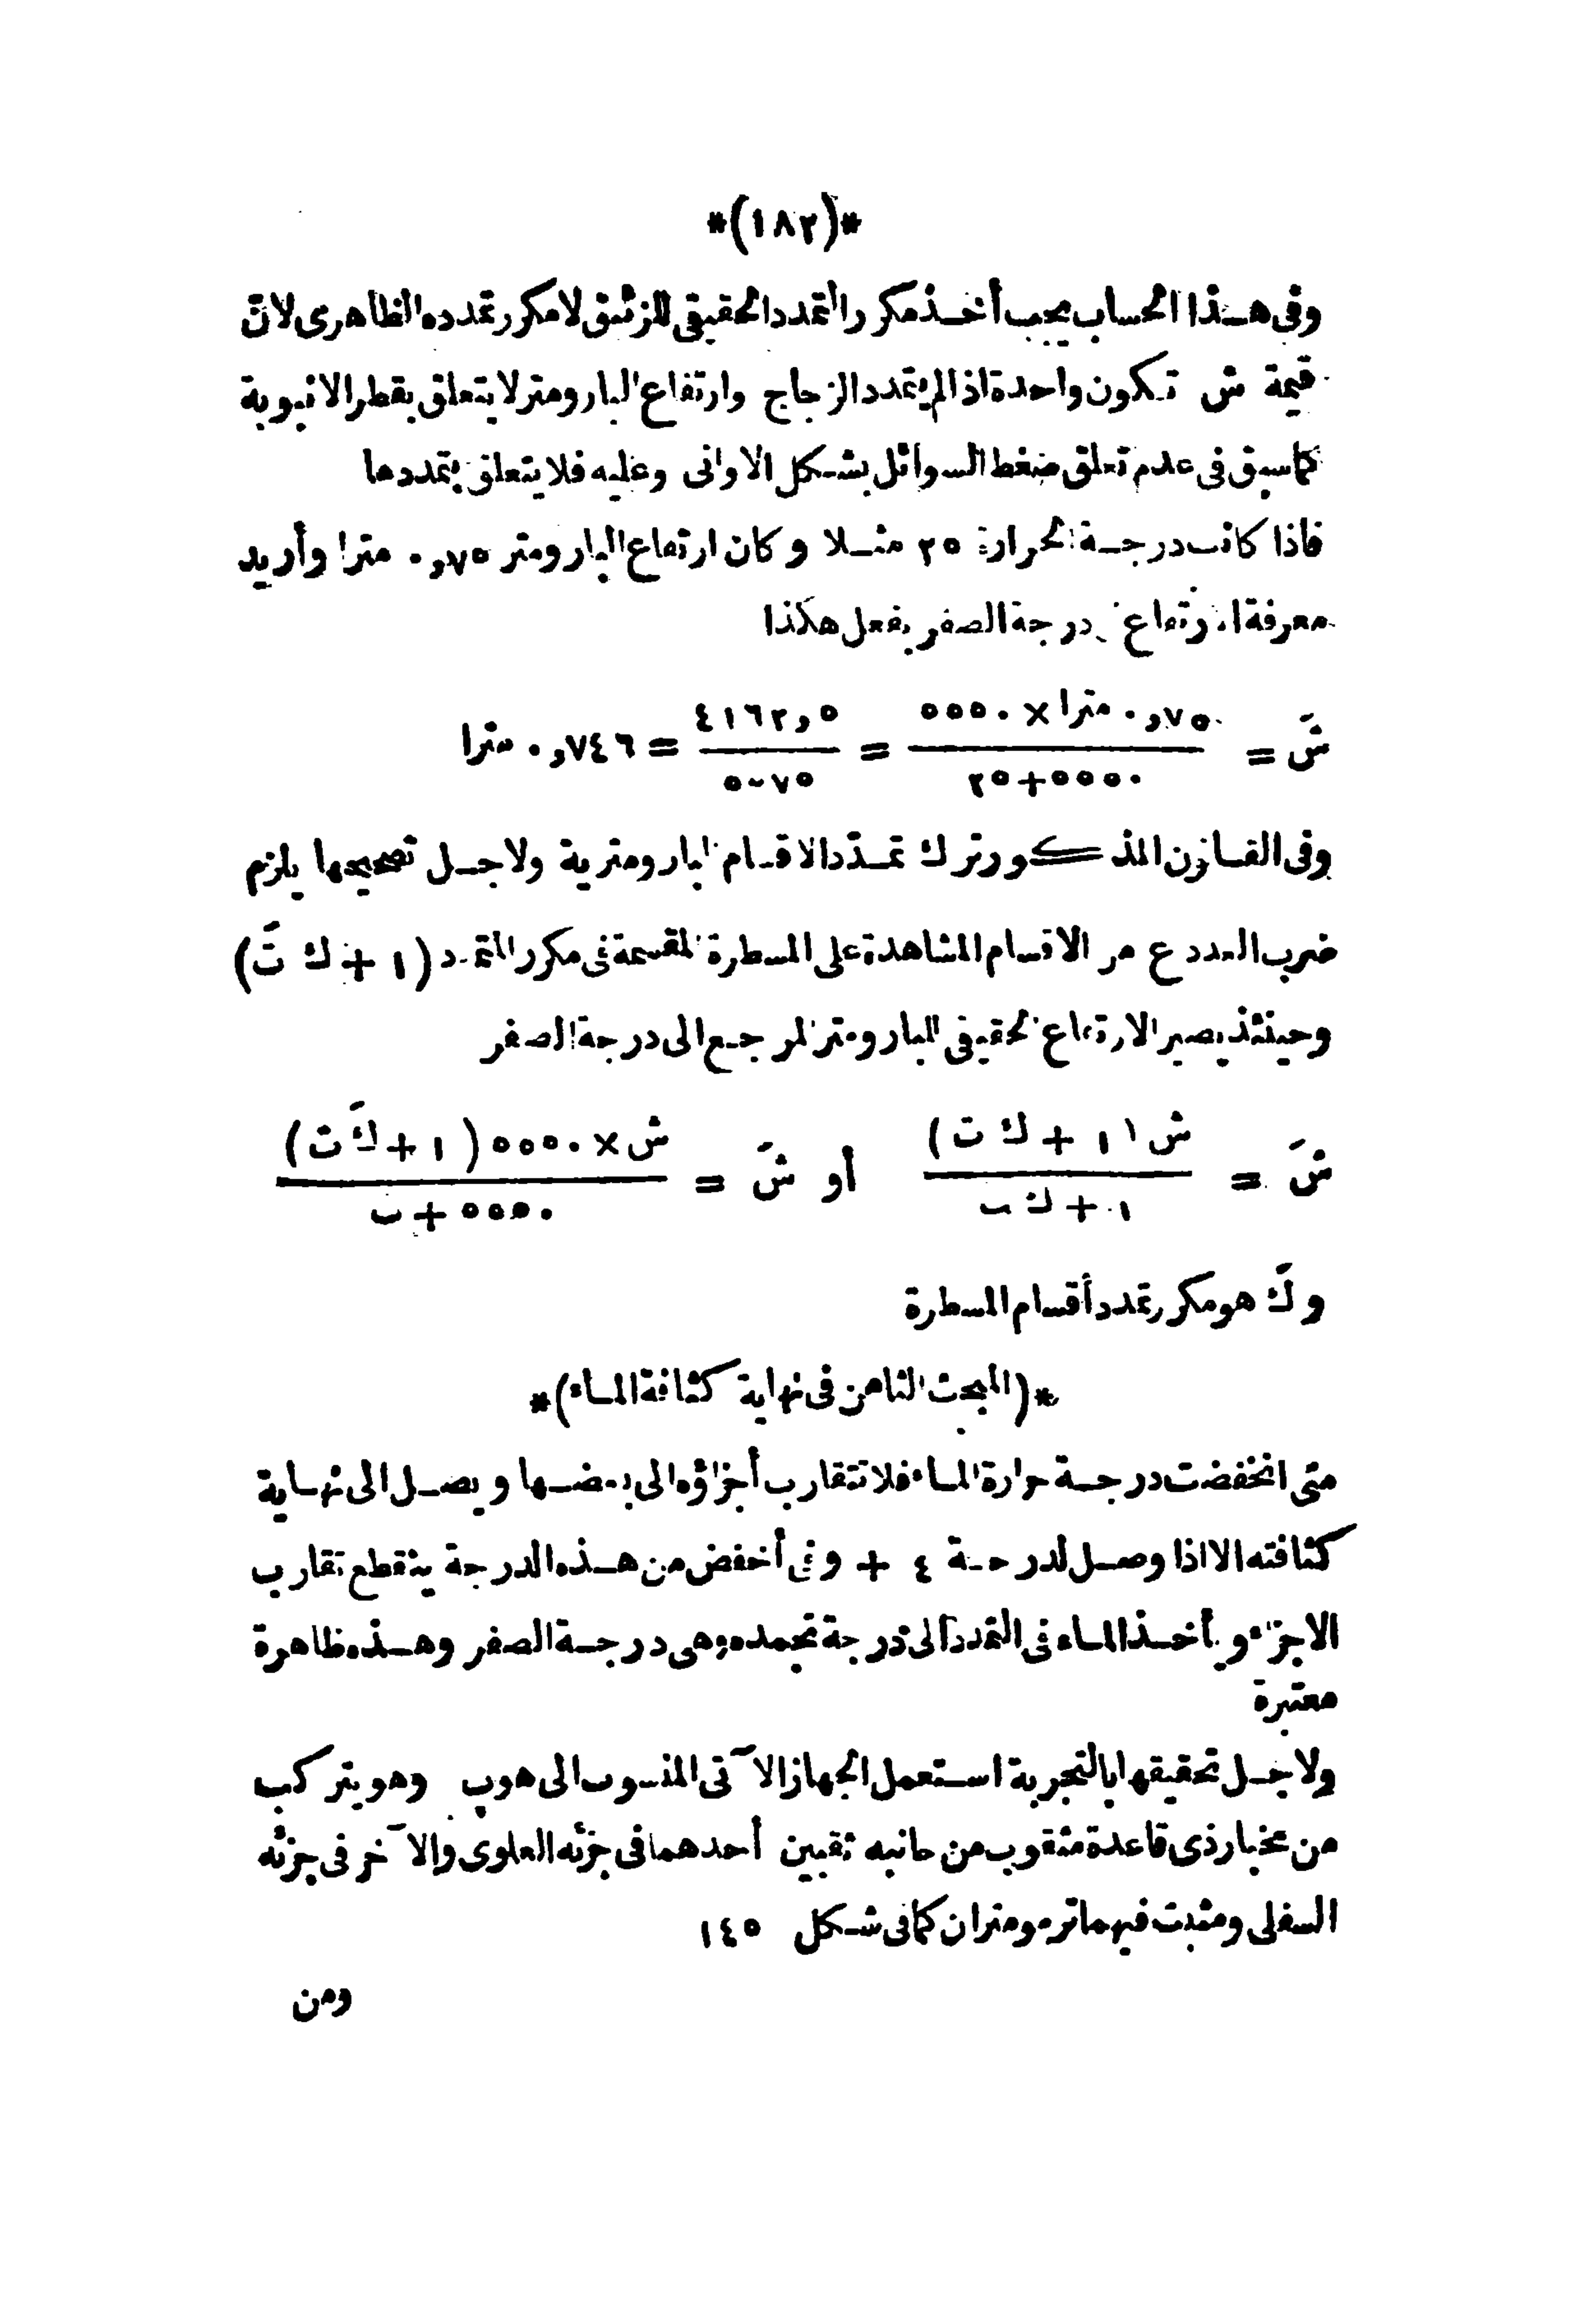 *(١٨٢)*
وفى هـذا الحساب يجب أخـذ مكرر التمدد الحقيقى للزئبق لا مكرر تمدده الظاهرى لان
قيمة ش تـكون واحدة اذا لم يتمدد الزجاج وارتفاع البارومتر لا يتعلق بقطر الانبوبة
كما سبق فى عدم تعلق ضغط السوائل بشـكل الاوانى وعليه فلا يتعلق بتمددها
فاذا كانت درجـة الحرارة ٢٥ مثـلا وكان ارتفاع البارومتر ٠,٧٥ مترا وأريد
معرفة ارتفاع درجة الصفر يفعل هكذا
شَ = ٠,٧٥ مترا × ٥٥٥٠ / ٥٥٥٠+٢٥ = ٤١٦٢,٥ / ٥٥٧٥ = ٠,٧٤٦ مترا
وفى القـانون المذكور ترك تمـدّد الاقسام البارومترية ولاجـل تصحيحها يلزم
ضرب العدد ع من الاقسام المشاهدة على المسطرة المقسمة فى مكرر التمدد (١ + كَ ت)
وحينئذ يصير الارتفاع الحقيقى للبارومتر المرجـع الى درجة الصفر
شَ = ش (١ + كَ ت) / ١ + ك ت أو شَ = ش × ٥٥٥٠ (١ + كَ ت) / ٥٥٥٠ + ت
و كَ هو مكرر تمدد أقسام المسطرة
*(المبحث الثامن فى نهاية كثافة المـاء)*
متى انخفضت درجـة حرارة المـاء فلا تتقارب أجزاؤه الى بعضـها ويصـل الى نهـاية
كثافته الا اذا وصـل لدرجـة ٤ + وفى أخفض من هـذه الدرجة ينقطع تقارب
الاجزاء ويأخـذ المـاء فى التمدد الى درجة تجمده وهى درجـة الصفر وهـذه ظاهرة
معتبرة
ولاجـل تحقيقها بالتجربة استعمل الجهاز الآتى المنسوب الى هوب وهو يتركب
من مخبار ذى قاعدة مثقوب من جانبه ثقبين أحدهما فى جزئه العلوى والآخر فى جزئه
السفلى ومثبت فيهما ترمومتران كما فى شـكل ١٤٥
ومن